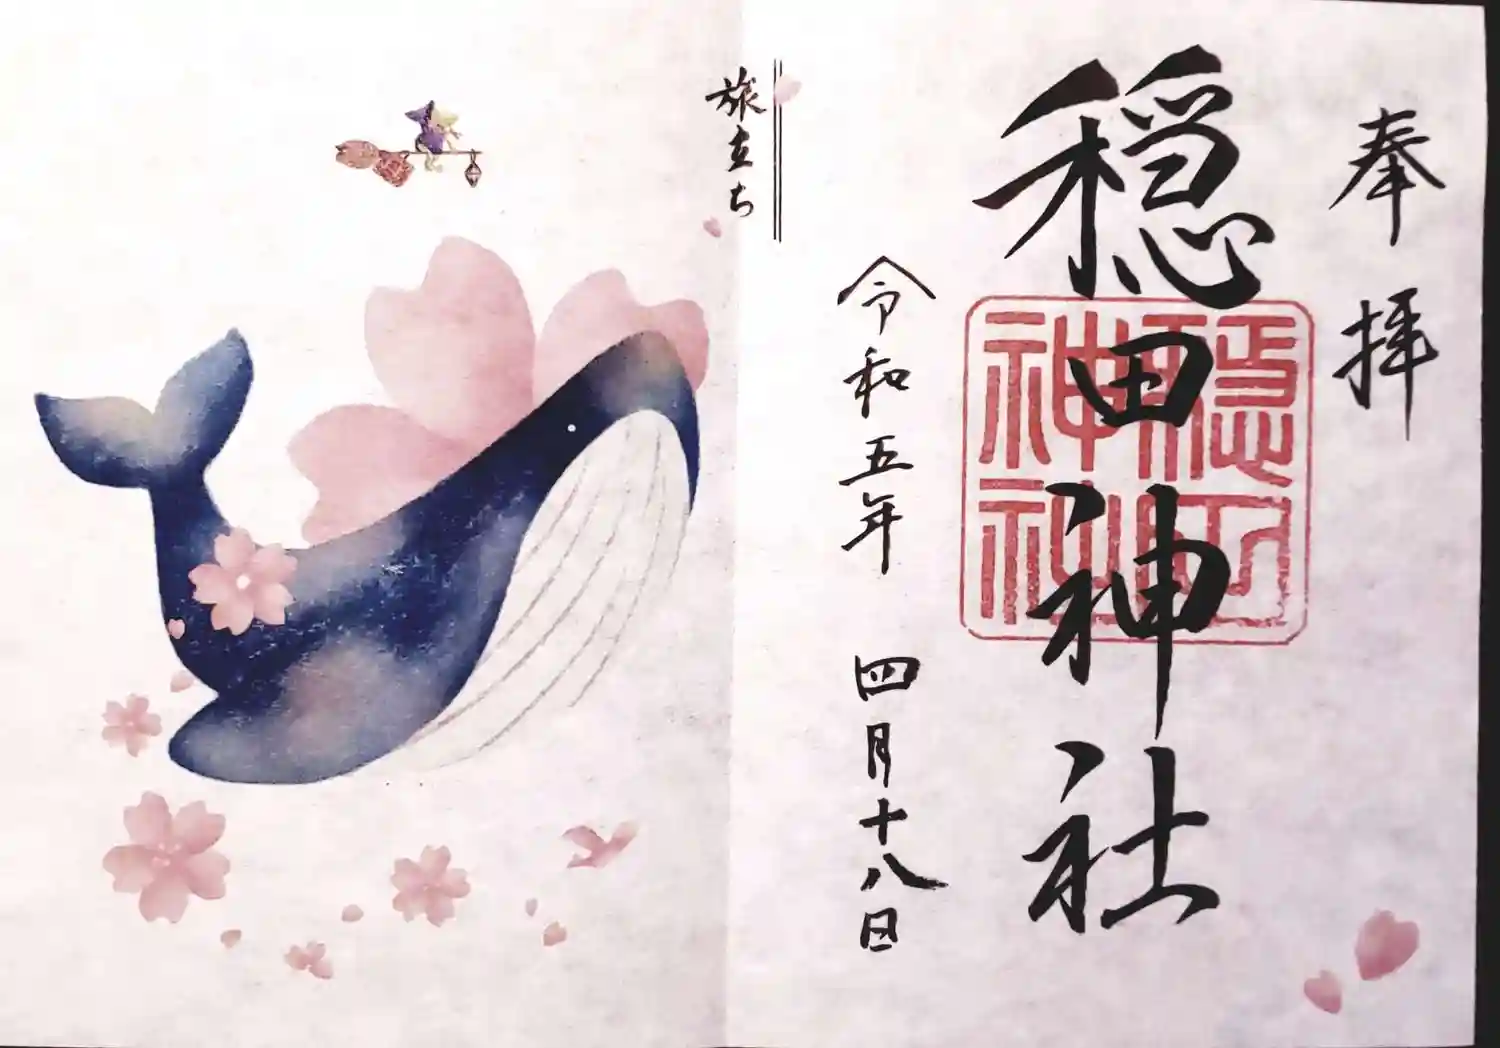 奉拝
穏田神社
穏田
神社
令和五年 四月十八日
旅立ち